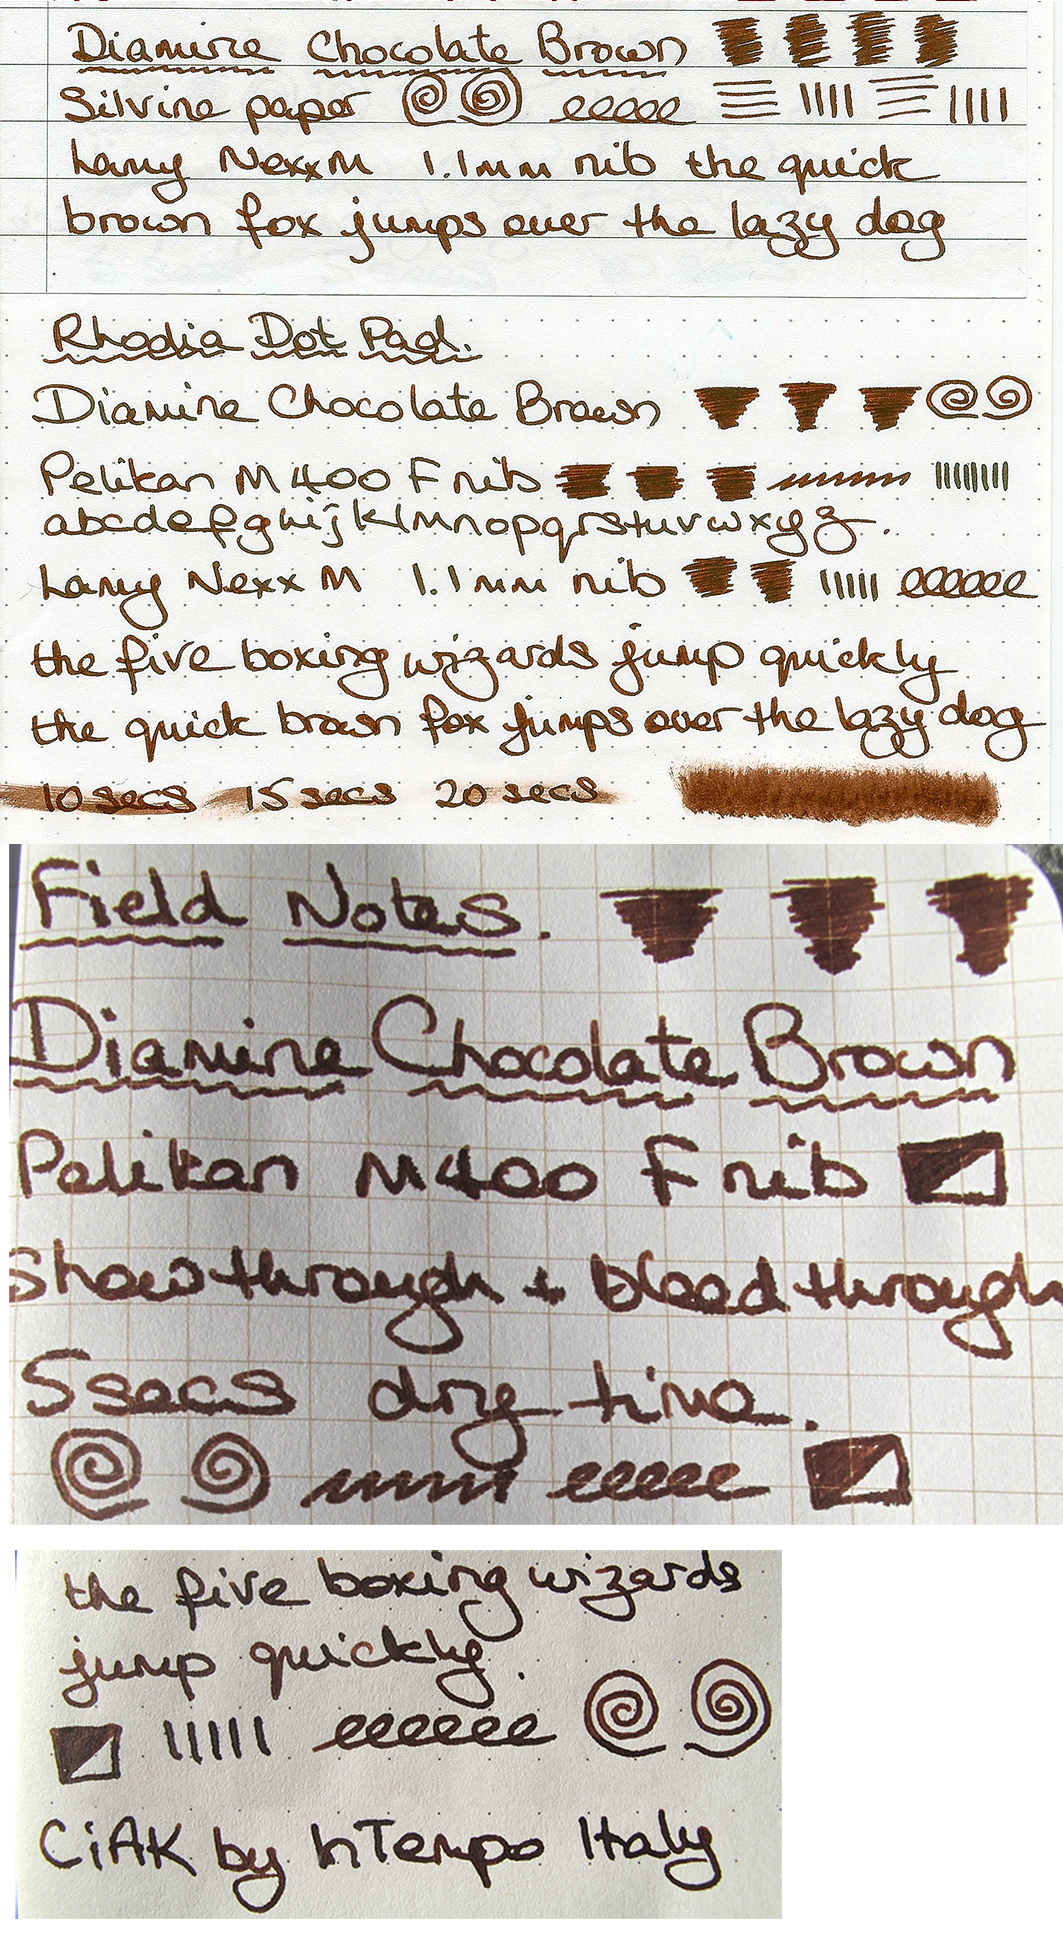 Diamine Chocolate Brown
Silvine paper
Lamy Nexx M 1.1mm nib the quick
brown fox jumps over the lazy dog
Rhodia Dot Pad.
Diamine Chocolate Brown
Pelikan M400 F nib
abcdefghijklmnopqrstuvwxyz.
Lamy Nexx M 1.1mm nib
the five boxing wizards jump quickly
the quick brown fox jumps over the lazy dog
10 secs 15 secs 20 secs
Field Notes.
Diamine Chocolate Brown
Pelikan M400 F nib
Showthrough + bleedthrough
5secs dry time.
the five boxing wizards
jump quickly.
CiAK by InTempo Italy